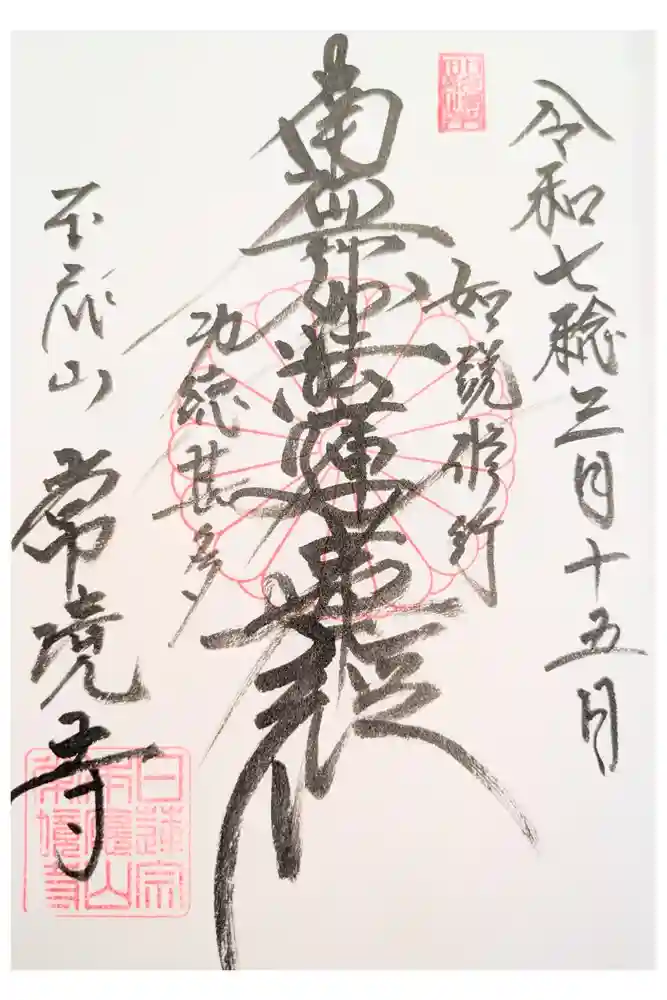 令和七稔三月十五日
如説修行
南無妙法蓮華経
功徳甚多
本山 常境寺
日蓮宗
山
常境寺